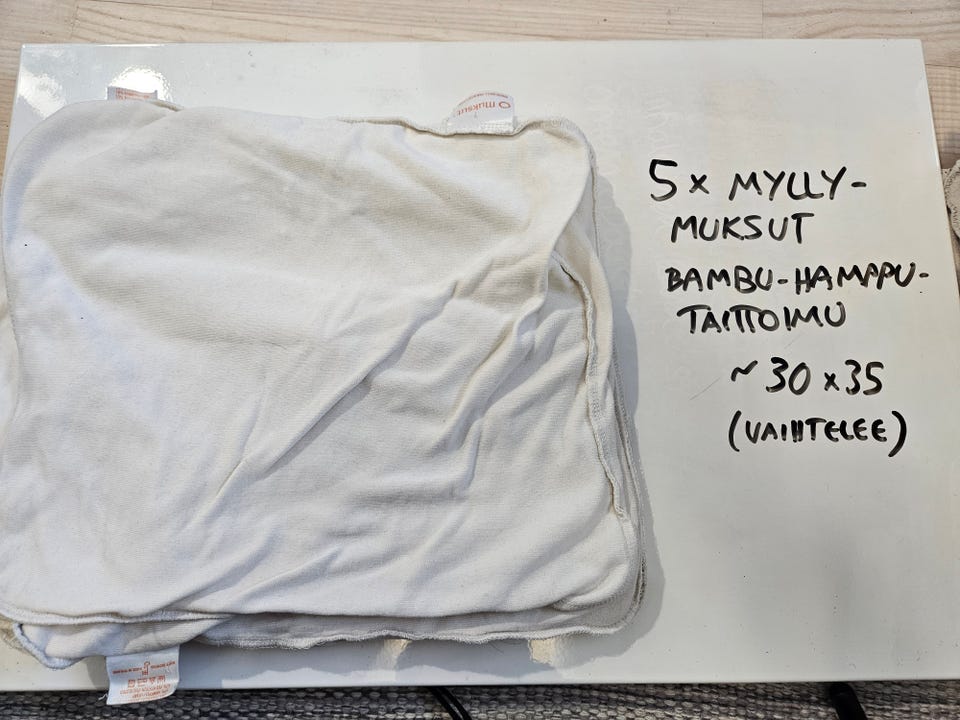 muksut
5x MYLLY-
MUKSUT
BAMBU-HAMPPU-
TAITTOIMU
~ 30 x 35
(VAIHTELEE)